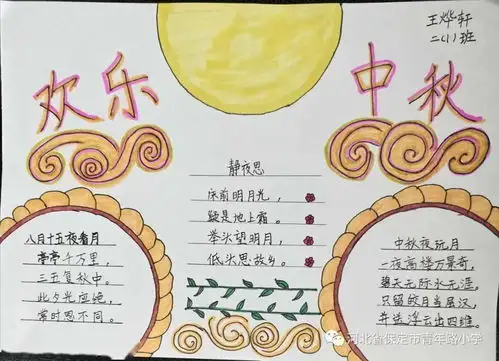 王烨轩
二(1)班
欢乐
中秋
静夜思
床前明月光，
疑是地上霜。
举头望明月，
低头思故乡。
八月十五夜看月
亭亭千万里，
三五复秋中。
此夕光应绝，
常时思不同。
中秋夜玩月
一夜高楼万景奇，
碧天无际水无涯。
只留皎月当层汉，
并送浮云出四维。
河北省保定市青年路小学